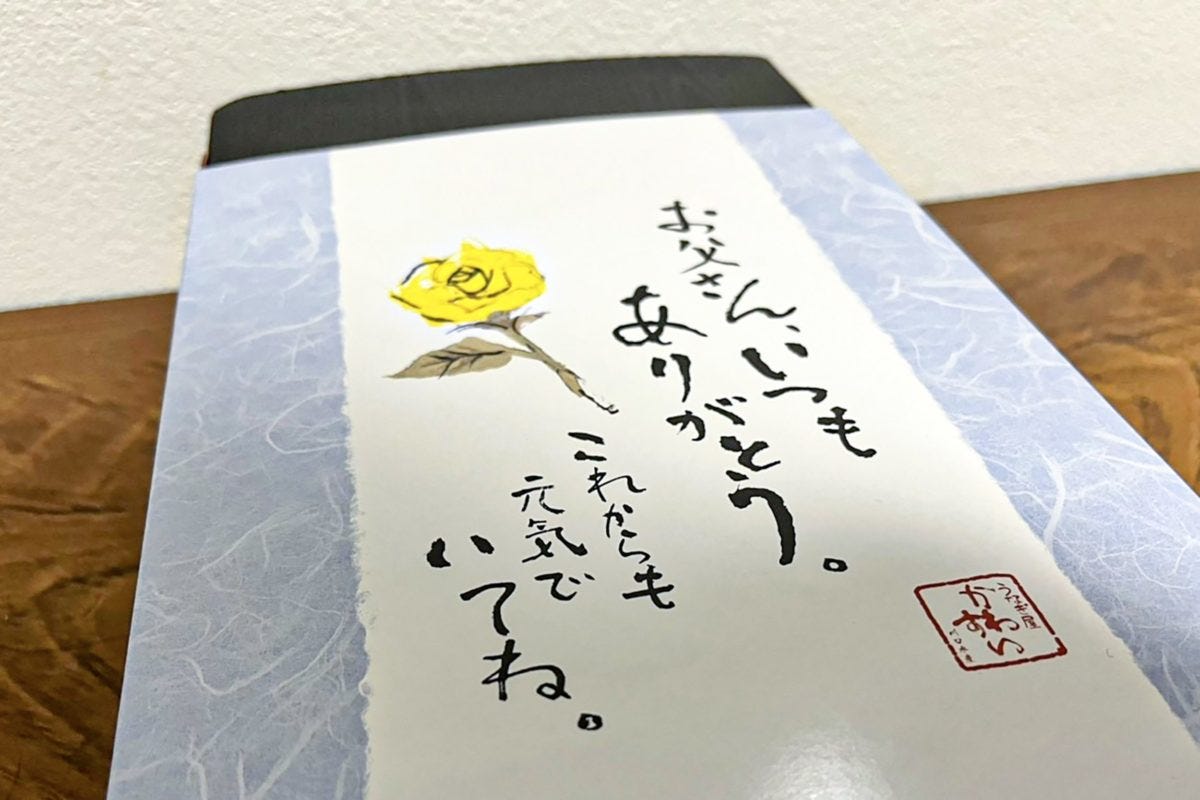 お父さん、いつも
ありがとう。
これからも
元気で
いてね。
うなぎ屋
かわい